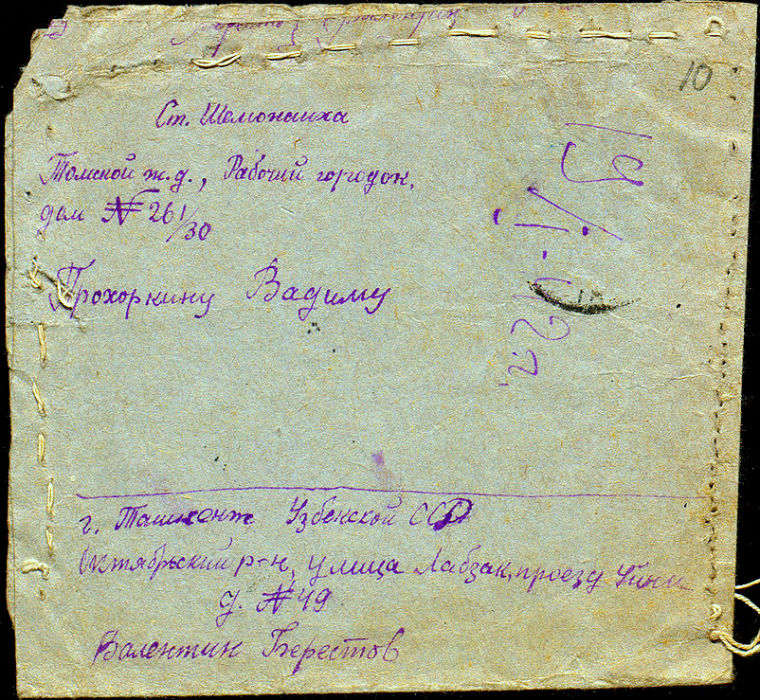 10
Ст. Шемонаиха
Томской ж.д., Рабочий городок,
дом № 261/30
Прохоркину Вадиму
19/I-42 г.
г. Ташкент Узбекской ССР
Октябрьский р-н, улица Лабзак, проезд
д. № 49
Валентин Берестов